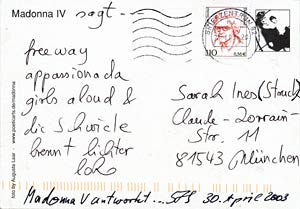 Madonna IV sagt --
BRIEFZENTRUM
110
0,56 €
freeway
appassionada
girls aloud &
die Schickle
brennt lichter
loh
Sarah Ines (Struck)
Claude-Lorrain-
Str. 11
81543 München
Madonna V antwortet... 30. April 2003
www.poetcards.de/madonna
foto by Augusta Laar